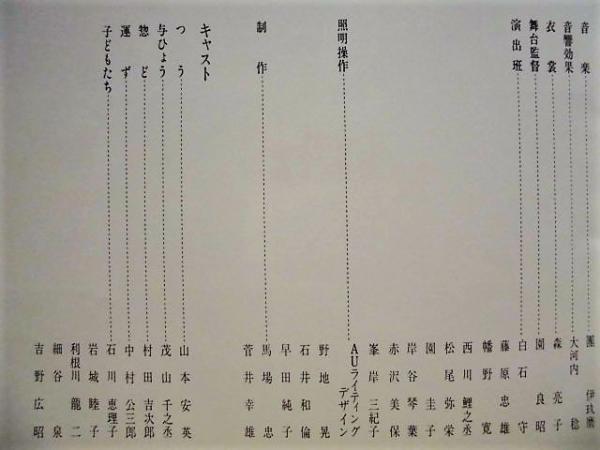 音楽……團伊玖磨
音響効果……大河内稔
衣裳……森亮子
舞台監督……園良昭
演出班……白石守
藤原忠雄
幡野寛
西川鯉之丞
松尾弥栄
園圭子
岸谷琴葉
赤沢美保
峯岸三紀子
照明操作……AUライティングデザイン
野地晃
石井和倫
早田純子
制作……馬場忠
菅井幸雄
キャスト
つう……山本安英
与ひょう……茂山千之丞
惣ど……村田吉次郎
運ず……中村公三郎
子どもたち……石川恵理子
岩城睦子
利根川龍二
細谷泉
吉野広昭